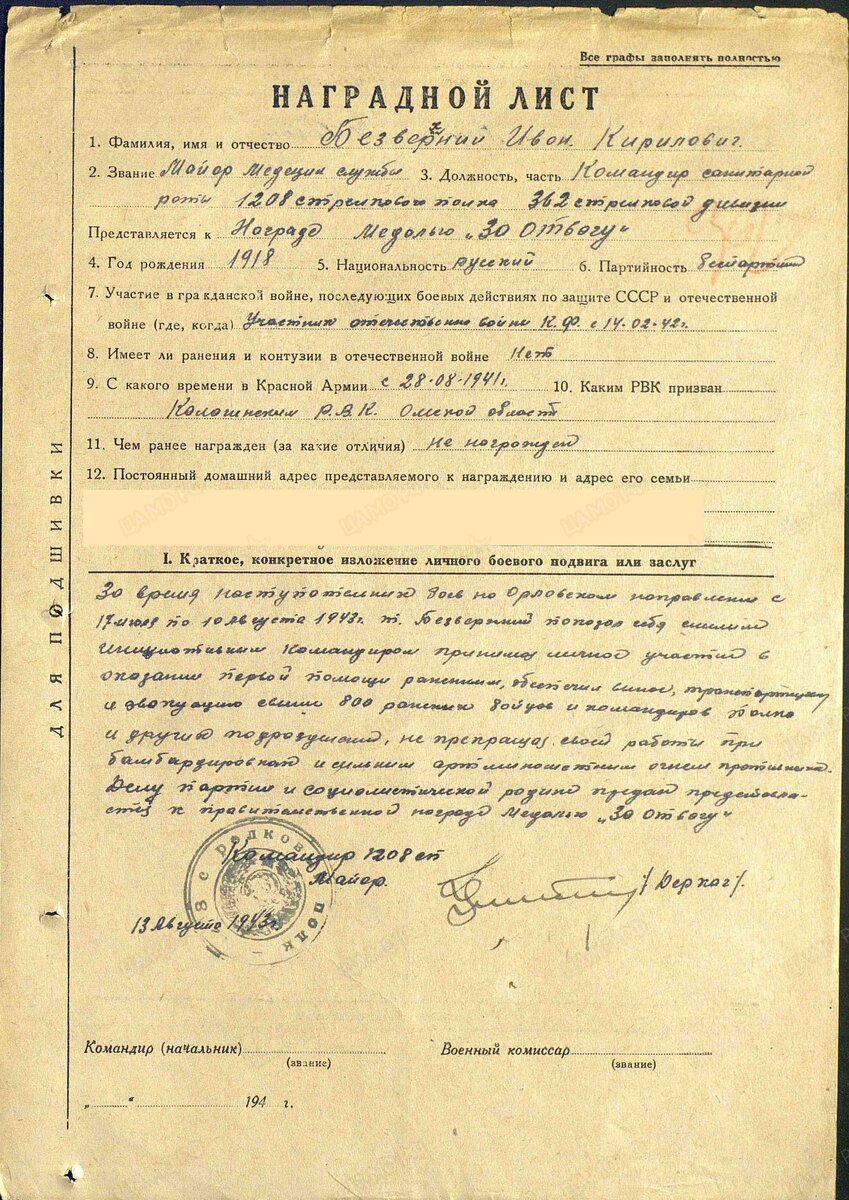 Все графы заполнять полностью
НАГРАДНОЙ ЛИСТ
1. Фамилия, имя и отчество Безверхний Иван Кирилович.
2. Звание Майор Медецин службы 3. Должность, часть Командир санитарной
роты 1208 стрелкового полка 362 стрелковой дивизии
Представляется к Награде Медалью „За Отвагу“
4. Год рождения 1918 5. Национальность русский 6. Партийность беспартийн
7. Участие в гражданской войне, последующих боевых действиях по защите СССР и отечественной
войне (где, когда) Участник отечествено войны К.Ф. с 14-02-42г.
8. Имеет ли ранения и контузии в отечественной войне Нет
9. С какого времени в Красной Армии с 28-08-1941г. 10. Каким РВК призван
Калачинским Р.В.К. Омской области
11. Чем ранее награжден (за какие отличия) не награжден
12. Постоянный домашний адрес представляемого к награждению и адрес его семьи
I. Краткое, конкретное изложение личного боевого подвига или заслуг
За время наступательных боев на Орловском направлении с
17 июля по 10 Августа 1943г. т. Безверхний показал себя смелым
инициативным командиром принимая личное участие в
оказании первой помощи раненным, обеспечил вынос, транспортировку
и эвакуацию свыше 800 раненых бойцов и командиров полка
и других подразделений, не прекращая своей работы при
бамбардировках и сильным арт.минометным огнем противника.
Делу партии и социалистической родине предан представля-
ется к правительственной награде Медалью „За Отвагу“
Командир 1208 сп
Майор. /Деркач/.
13 Августа 1943г.
Командир (начальник) Военный комиссар
(звание) (звание)
„ “ 194 г.
ДЛЯ ПОДШИВКИ